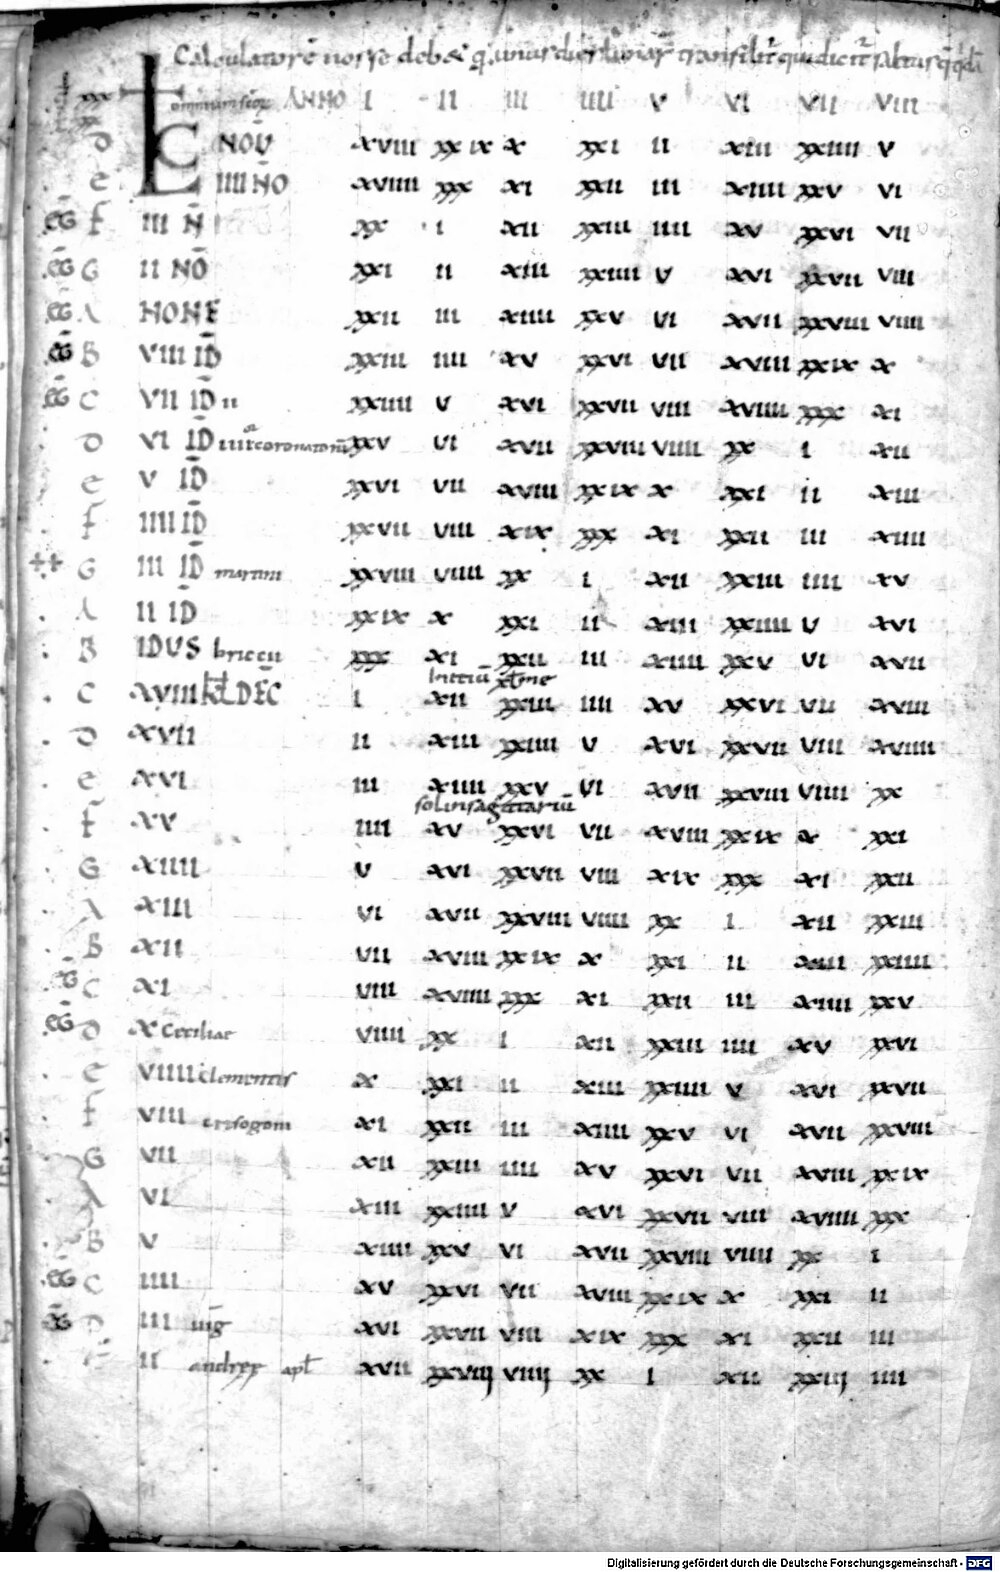 Calculatore nosse deb& q unus dies lunaris transilit qui dicit saltus
xxx omnium ANNO I II III IIII V VI VII VIII
D KL NOV XVIII XXIX X XXI II XIII XXIIII V
e IIII NO XVIIII XXX XI XXII III XIIII XXV VI
eG f III N XX I XII XXIII IIII XV XXVI VII
eG G II NO XXI II XIII XXIIII V XVI XXVII VIII
eG A NONE XXII III XIIII XXV VI XVII XXVIII VIIII
eG B VIII ID XXIII IIII XV XXVI VII XVIII XXIX X
eG C VII ID XXIIII V XVI XXVII VIII XVIIII XXX XI
D VI ID IIII coronatorū XXV VI XVII XXVIII VIIII XX I XII
e V ID XXVI VII XVIII XXIX X XXI II XIII
f IIII ID XXVII VIII XIX XXX XI XXII III XIIII
++ G III ID martini XXVIII VIIII XX I XII XXIII IIII XV
A II ID XXIX X XXI II XIII XXIIII V XVI
B IDUS briccii XXX XI XXII III XIIII XXV VI XVII
C XVIII KL DEC I XII XXIII IIII XV XXVI VII XVIII
D XVII II XIII XXIIII V XVI XXVII VIII XVIIII
e XVI III XIIII XXV VI XVII XXVIII VIIII XX
sol in sagittariū
f XV IIII XV XXVI VII XVIII XXIX X XXI
G XIIII V XVI XXVII VIII XIX XXX XI XXII
A XIII VI XVII XXVIII VIIII XX I XII XXIII
B XII VII XVIII XXIX X XXI II XIII XXIIII
eG C XI VIII XVIIII XXX XI XXII III XIIII XXV
eG D X Ceciliae VIIII XX I XII XXIII IIII XV XXVI
e VIIII clementis X XXI II XIII XXIIII V XVI XXVII
f VIII crisogoni XI XXII III XIIII XXV VI XVII XXVIII
G VII XII XXIII IIII XV XXVI VII XVIII XXIX
A VI XIII XXIIII V XVI XXVII VIII XVIIII XXX
B V XIIII XXV VI XVII XXVIII VIIII XX I
eG C IIII XV XXVI VII XVIII XXIX X XXI II
D III uig XVI XXVII VIII XIX XXX XI XXII III
II andreę apł XVII XXVIIJ VIIIJ XX I XII XXIIJ IIII
Digitalisierung gefördert durch die Deutsche Forschungsgemeinschaft - DFG